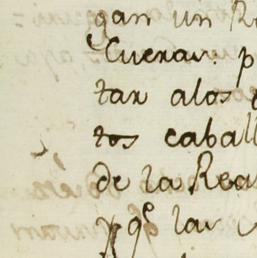 gan un R
Cueras. p
tar alos
tos cabal
de la Rea
y qe las